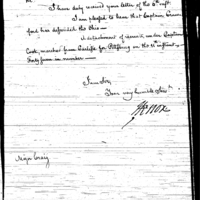 Sir.
I have duly received your letter of the 6th inst.
I am pleased to hear that Captain
has descended the Ohio —
A detachment of
Cook, marched from Carlisle for Pittsburg on the 11th instant,
Forty four in number —
I am Sir,
Your very humble Serv.t
HKnox
Major Craig